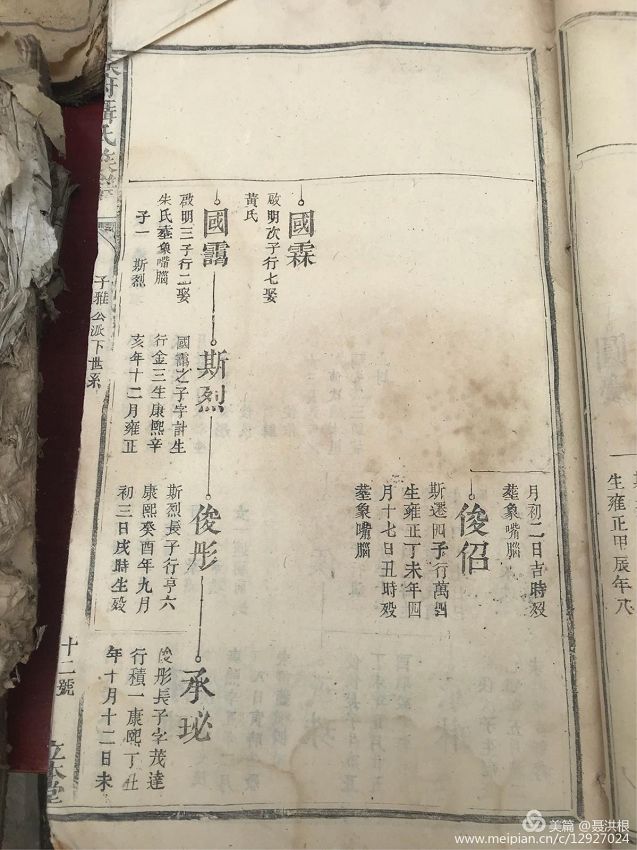 月初二日吉時殁
塟象嘴腦
俊佋
斯遷四子行萬四
生雍正丁未年四
月十七日丑時殁
塟象嘴腦
國霖
啟明次子行七娶
黃氏
國靄
啟明三子行二娶
朱氏塟象嘴腦
子一 斯烈
斯烈
國靄之子字計生
行金三生康熙辛
亥年十二月雍正
俊彤
斯烈長子行亨六
康熙癸酉年九月
初三日戌時生殁
承珌
俊彤長子字茂達
行積一康熙丁丑
年十月十二日未
氏族譜
子雅公派下世系
十二號
立本堂
生雍正甲辰年八
美篇 @聂洪根
www.meipian.cn/c/12927024